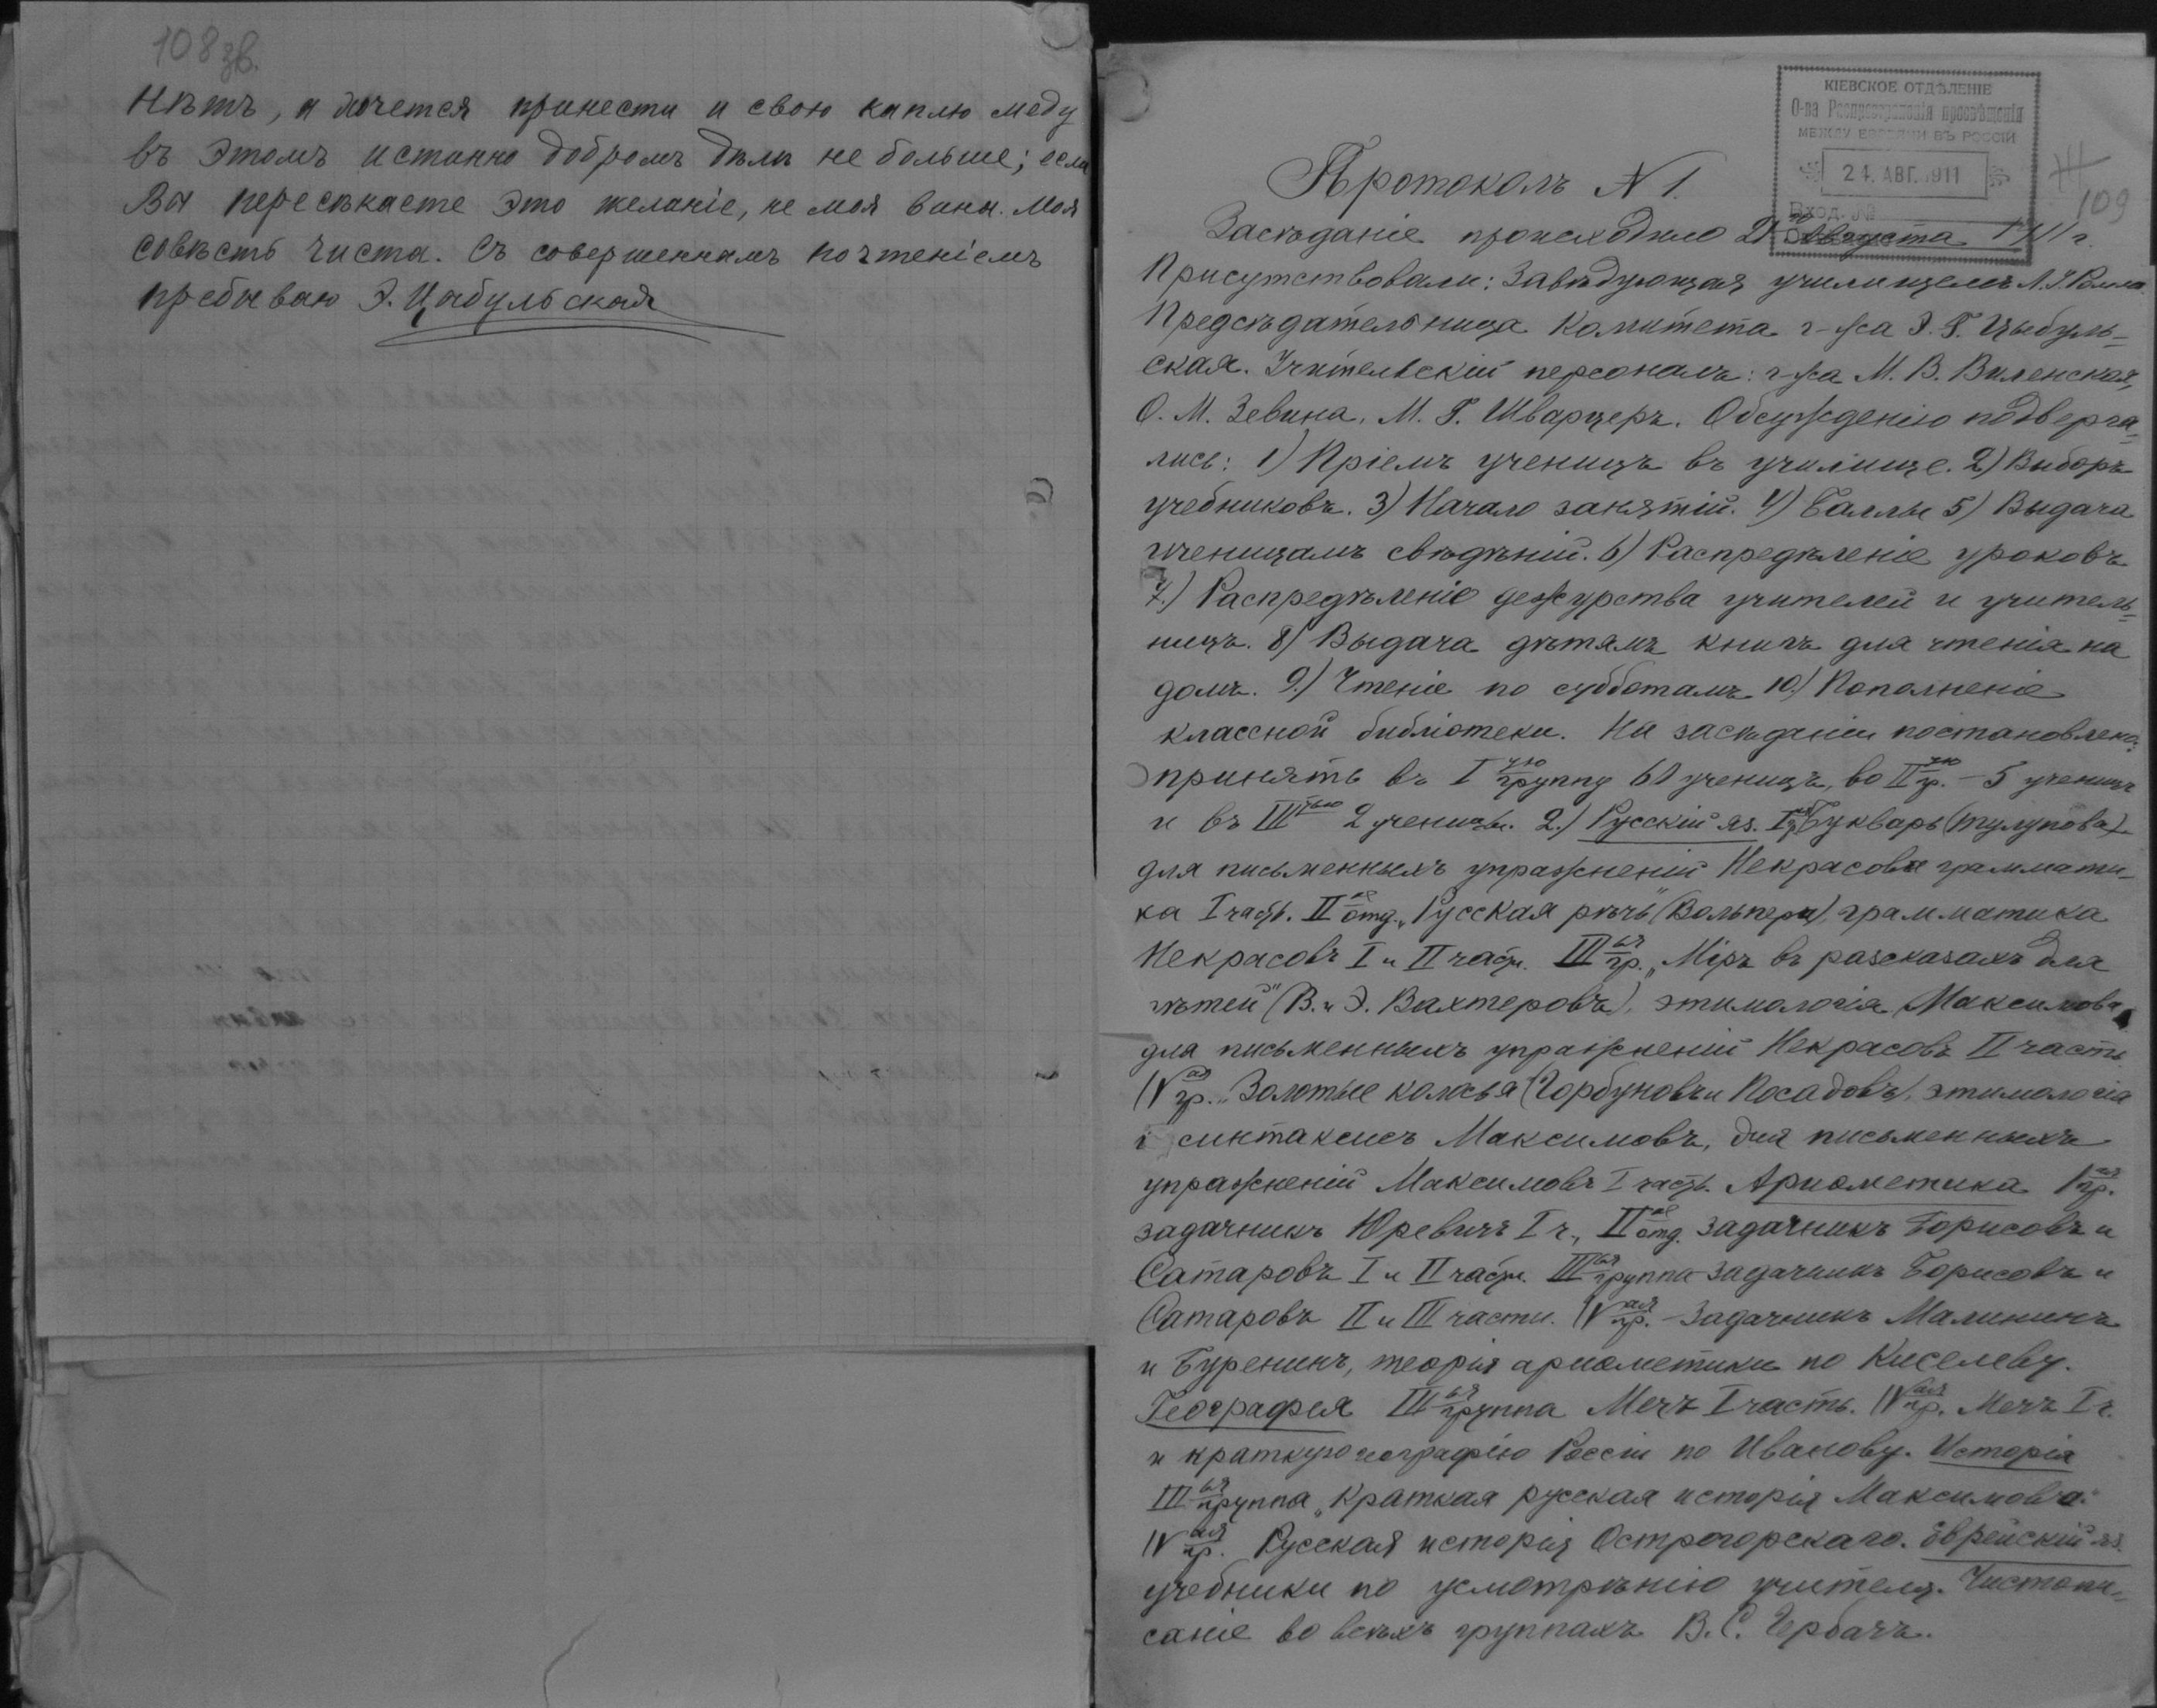 108 зв.
нѣтъ, а хочется принести и свою каплю меду
въ этомъ истинно добромъ дѣлѣ не больше; если
Вы пересѣкаете это желаніе, не моя вина. Моя
совѣсть чиста. Съ совершеннымъ почтеніемъ
пребываю Э. Цыбульская
КІЕВСКОЕ ОТДѢЛЕНІЕ
О-ва Распространенія просвѣщенія
МЕЖДУ ЕВРЕЯМИ ВЪ РОССІИ
24. АВГ. 1911
Вход. №
109
Протоколъ N 1.
Засѣданіе происходило 21 Августа 1911 г.
Присутствовали: Завѣдующая училищемъ
Предсѣдательница Комитета г-жа Э. Г. Цыбуль-
ская. Учительскій персоналъ: г-жа М. В. Виленская,
О. М. Зевина, М. Г. Шварцеръ. Обсужденію подверга-
лись: 1) Пріемъ ученицъ въ училище. 2) Выборъ
учебниковъ. 3) Начало занятій. 4) Баллы 5) Выдача
ученицамъ свѣдѣній. 6) Распредѣленіе уроковъ
7.) Распредѣленіе дежурства учителей и учитель-
ницъ. 8) Выдача дѣтямъ книгъ для чтенія на
домъ. 9.) Чтеніе по субботамъ 10.) Пополненіе
классной библіотеки. На засѣданіи постановлено:
принять въ I ую группу 60 ученицъ, во II ую гр. - 5 ученицъ
и въ III тью 2 ученицы. 2.) Русскій яз. I ая гр. Букварь (Тулупова)
для письменныхъ упражненій Некрасова граммати-
ка I часть. II ое отд. „Русская рѣчь" (Вольпера), грамматика
Некрасовъ I и II части. III ья гр. „Міръ въ разсказахъ для
дѣтей" (В. и Э. Вахтеровъ), этимологія Максимова,
для письменныхъ упражненій Некрасовъ II часть
IV ая гр. „Золотые колосья (Горбуновъ и Посадовъ), этимологія
и синтаксисъ Максимовъ, для письменныхъ
упражненій Максимовъ I часть. Ариѳметика I ая гр.
задачникъ Юревичъ I ч., II ое отд. задачникъ Борисовъ и
Сатаровъ I и II части. III ья группа задачникъ Борисовъ и
Сатаровъ II и III части. IV ая гр. - Задачникъ Малининъ
и Буренинъ, теорія ариѳметики по Киселеву.
Географія III ья группа Мечъ I часть. IV ая гр. Мечъ I ч.
и краткую географію Россіи по Иванову. Исторія
III ья группа „Краткая русская исторія Максимова."
IV ая гр. Русская исторія Острогорскаго. Еврейскій яз.
учебники по усмотрѣнію учителя. Чистопи-
саніе во всѣхъ группахъ В. С. Гербачъ.